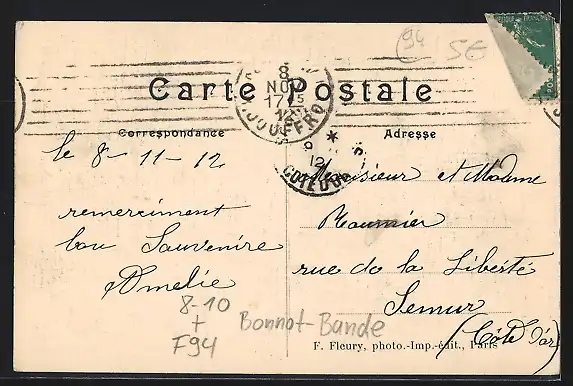 94
5E
Carte Postale
8
NO
17 15
12
JOUFFROY
Correspondance
Adresse
le 8-11-12
9
12
COTE D'OR
Monsieur et Madame
remerciment
bon Souvenire
Amelie
Roumier
rue de la Liberté
Semur
(Côte d'or)
8-10
+
F94
Bonnot-Bande
F. Fleury, photo.-Imp.-édit., Paris